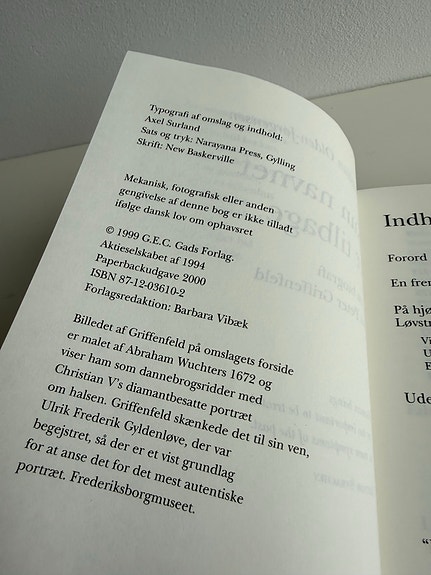 Typografi af omslag og indhold:
Axel Surland
Sats og tryk: Narayana Press, Gylling
Skrift: New Baskerville
Mekanisk, fotografisk eller anden
gengivelse af denne bog er ikke tilladt
ifølge dansk lov om ophavsret
© 1999 G.E.C. Gads Forlag.
Aktieselskabet af 1994
Paperbackudgave 2000
ISBN 87-12-03610-2
Forlagsredaktion: Barbara Vibæk
Billedet af Griffenfeld på omslagets forside
er malet af Abraham Wuchters 1672 og
viser ham som dannebrogsridder med
Christian V's diamantbesatte portræt
om halsen. Griffenfeld skænkede det til sin ven,
Ulrik Frederik Gyldenløve, der var
begejstret, så der er et vist grundlag
for at anse det for det mest autentiske
portræt. Frederiksborgmuseet.
Indh
Forord
En fren
På hjø
Løvstr
Vi
U
E
Ude